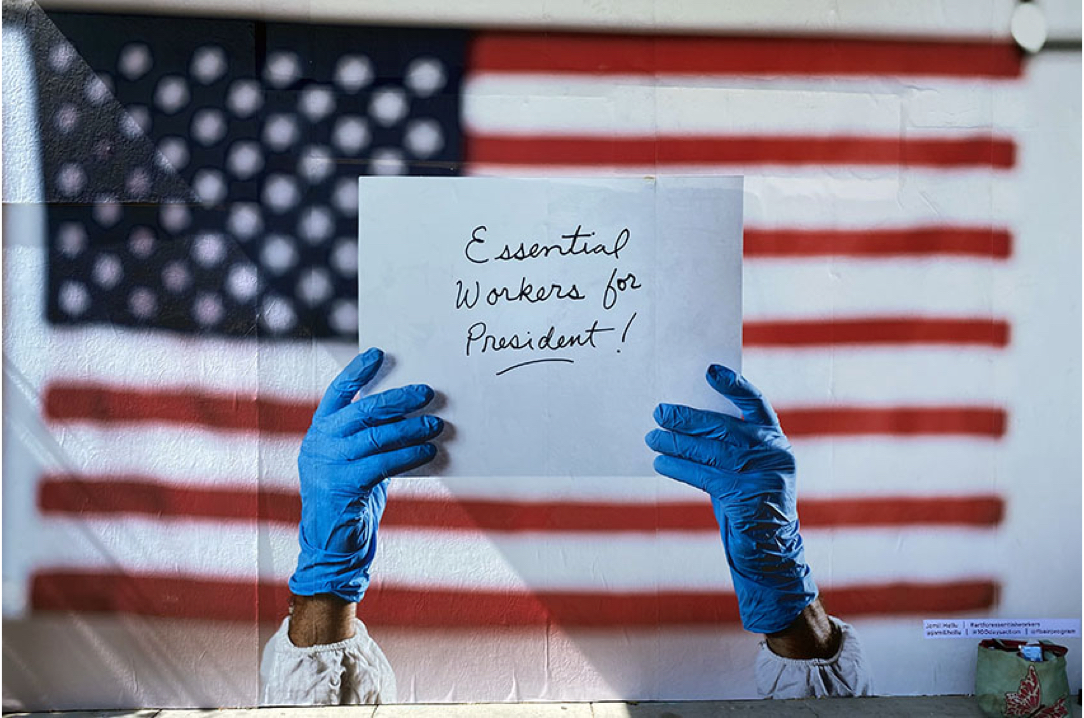 Essential
Workers for
President!
Jamil Hellu | #artforessentialworkers
@jamilhellu | @100daysaction | @fbairprogram